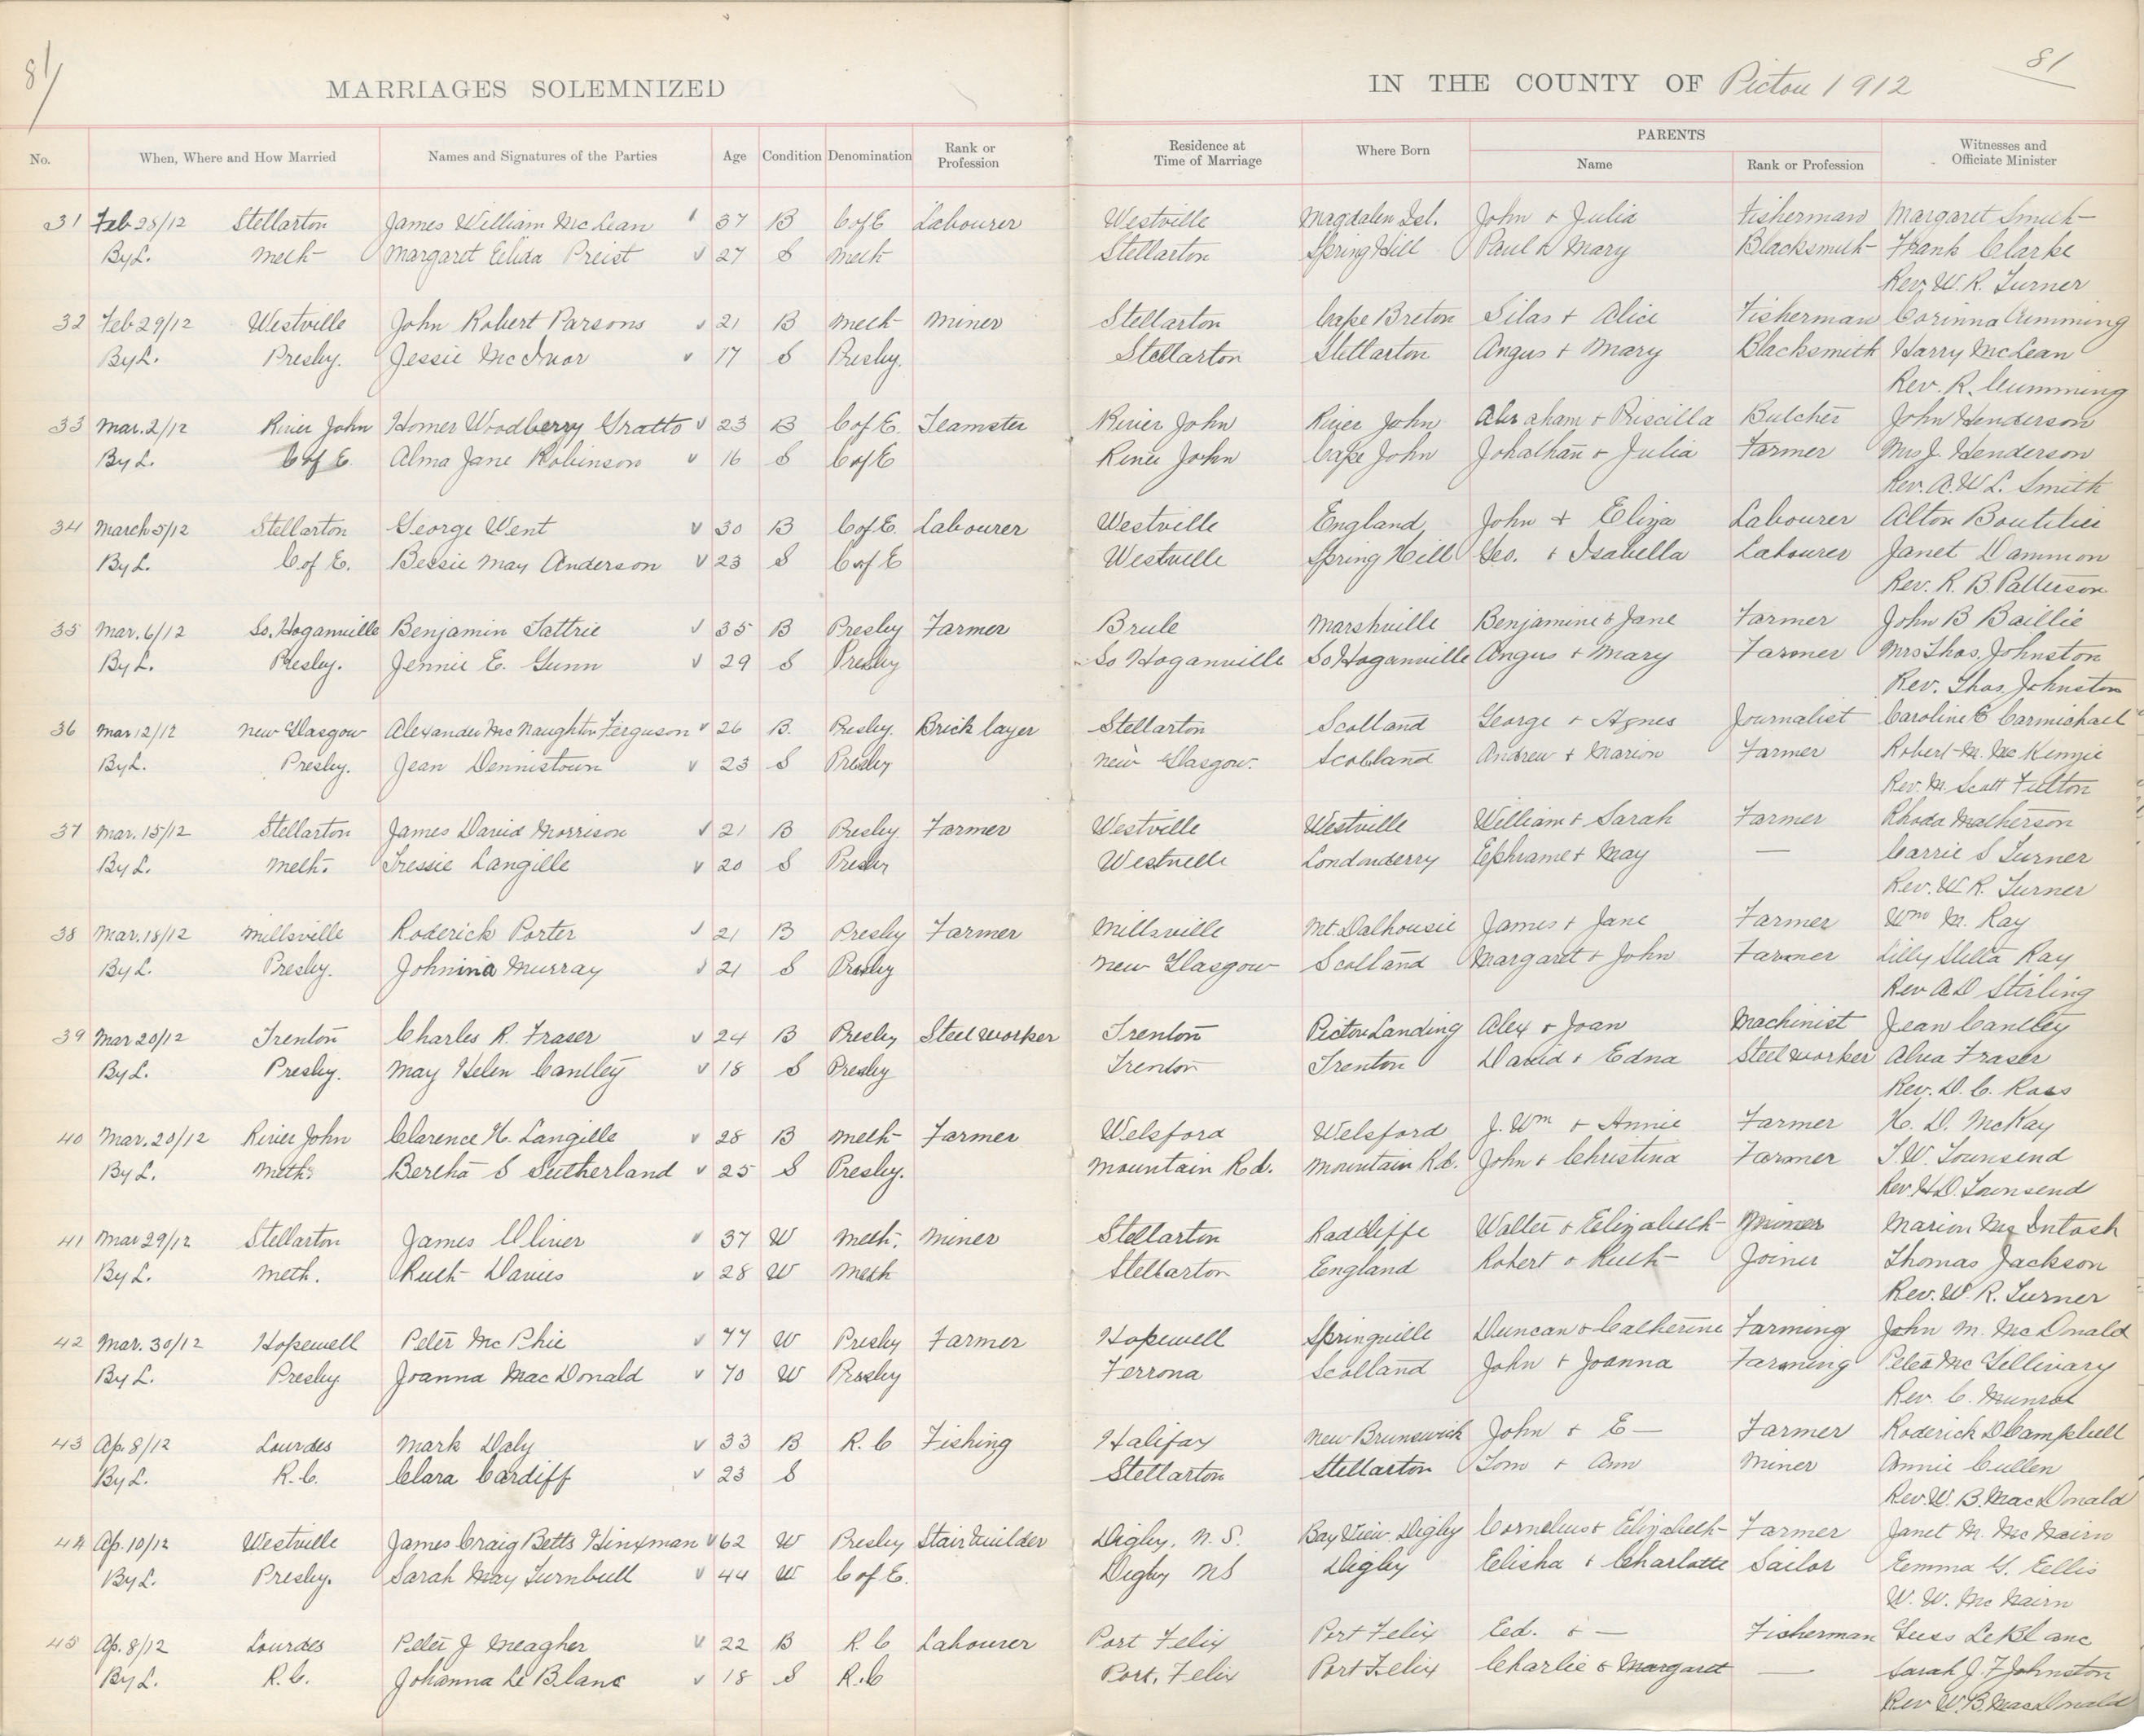 81
81
MARRIAGES SOLEMNIZED IN THE COUNTY OF Pictou 1912
No. When, Where and How Married Names and Signatures of the Parties Age Condition Denomination Rank or Profession Residence at Time of Marriage Where Born PARENTS Name Rank or Profession Witnesses and Officiate Minister
31 Feb 28/12 Stellarton James William McLean 37 B C of E Labourer Westville Magdalen Isl. John + Julia Fisherman Margaret Smith
By L. Meth Margaret Elida Preist 27 S Meth Stellarton Spring Hill Paul + Mary Blacksmith Frank Clarke
Rev. W. R. Turner
32 Feb 29/12 Westville John Robert Parsons 21 B Meth Miner Stellarton Cape Breton Silas + Alice Fisherman Corinna Cumming
By L. Presby. Jessie McIvor 17 S Presby. Stellarton Stellarton Angus + Mary Blacksmith Harry McLean
Rev. R. Cumming
33 Mar. 2/12 River John Homer Woodberry Gratto 23 B C of E. Teamster River John River John Abraham + Priscilla Butcher John Henderson
By L. C of E. Alma Jane Robinson 16 S C of E River John Cape John Johathan + Julia Farmer Mrs J. Henderson
Rev. A. W. L. Smith
34 March 5/12 Stellarton George Went 30 B C of E. Labourer Westville England John + Eliza Labourer Alton Boutilier
By L. C of E. Bessie May Anderson 23 S C of E Westville Spring Hill Geo. + Isabella Labourer Janet Dammon
Rev. R. B. Patterson
35 Mar. 6/12 So. Hoganville Benjamin Tattrie 35 B Presby Farmer Brule Marshville Benjamine & Jane Farmer John B Baillie
By L. Presby. Jennie E. Gunn 29 S Presby So Hoganville So Hoganville Angus + Mary Farmer Mrs Thos. Johnston
Rev. Thos. Johnston
36 Mar 12/12 New Glasgow Alexander McNaughton Ferguson 26 B. Presby. Brick layer Stellarton Scotland George + Agnes Journalist Caroline C Carmichael
By L. Presby. Jean Dennistoun 23 S Presby New Glasgow. Scotland Andrew + Marion Farmer Robert M. McKenzie
Rev. M. Scott Fulton
37 Mar. 15/12 Stellarton James David Morrison 21 B Presby. Farmer Westville Westville William + Sarah Farmer Rhoda Matherson
By L. Meth. Tressie Langille 20 S Presby Westville Londonderry Ephrame + May — Carrie S Turner
Rev. W. R. Turner
38 Mar. 18/12 Millsville Roderick Porter 21 B Presby Farmer Millsville Mt. Dalhousie James + Jane Farmer Wm M. Ray
By L. Presby. Johnina Murray 21 S Presby New Glasgow Scotland Margaret + John Farmer Lilly Stella Ray
Rev A D Stirling
39 Mar 20/12 Trenton Charles R. Fraser 24 B Presby Steel worker Trenton Pictou Landing Alex + Joan Machinist Jean Cantley
By L. Presby. May Helen Cantley 18 S Presby Trenton Trenton David + Edna Steel worker Alva Fraser
Rev. D. C. Ross
40 Mar. 20/12 River John Clarence H. Langille 28 B Meth Farmer Welsford Welsford J. Wm + Annie Farmer H. D. McKay
By L. Meth. Bertha S Sutherland 25 S Presby. Mountain Rd. Mountain Rd. John + Christina Farmer T. W. Townsend
Rev. H. D. Townsend
41 Mar 29/12 Stellarton James Oliver 37 W Meth. Miner Stellarton Radcliffe Walter & Elizabeth Miner Marion McIntosh
By L. Meth. Ruth Davies 28 W Meth Stellarton England Robert & Ruth Joiner Thomas Jackson
Rev. W. R. Turner
42 Mar. 30/12 Hopewell Peter McPhie 77 W Presby Farmer Hopewell Springville Duncan & Catherine Farming John M. McDonald
By L. Presby Joanna MacDonald 70 W Presby Ferrona Scotland John + Joanna Farming Peter McGillivary
Rev. C. Munroe
43 Ap. 8/12 Lourdes Mark Daly 33 B R. C Fishing Halifax New Brunswick John + E — Farmer Roderick D Campbell
By L. R. C. Clara Cardiff 23 S Stellarton Stellarton Tom + Ann Miner Annie Cullen
Rev W. B. MacDonald
44 Ap. 10/12 Westville James Craig Betts Hinxman 62 W Presby Stair builder Digby, N. S. Bay View Digby Cornelius + Elizabeth Farmer Janet M. McNairn
By L. Presby. Sarah May Turnbull 44 W C of E. Digby NS Digby Elisha + Charlotte Sailor Emma G. Ellis
W. W. McNairn
45 Ap. 8/12 Lourdes Peter J Meagher 22 B R. C Labourer Port Felix Port Felix Ed. & — Fisherman Guss LeBlanc
By L. R. C. Johanna Le Blanc 18 S R. C Port. Felix Port Felix Charlie & Margaret — Sarah J. F Johnston
Rev W. B. MacDonald